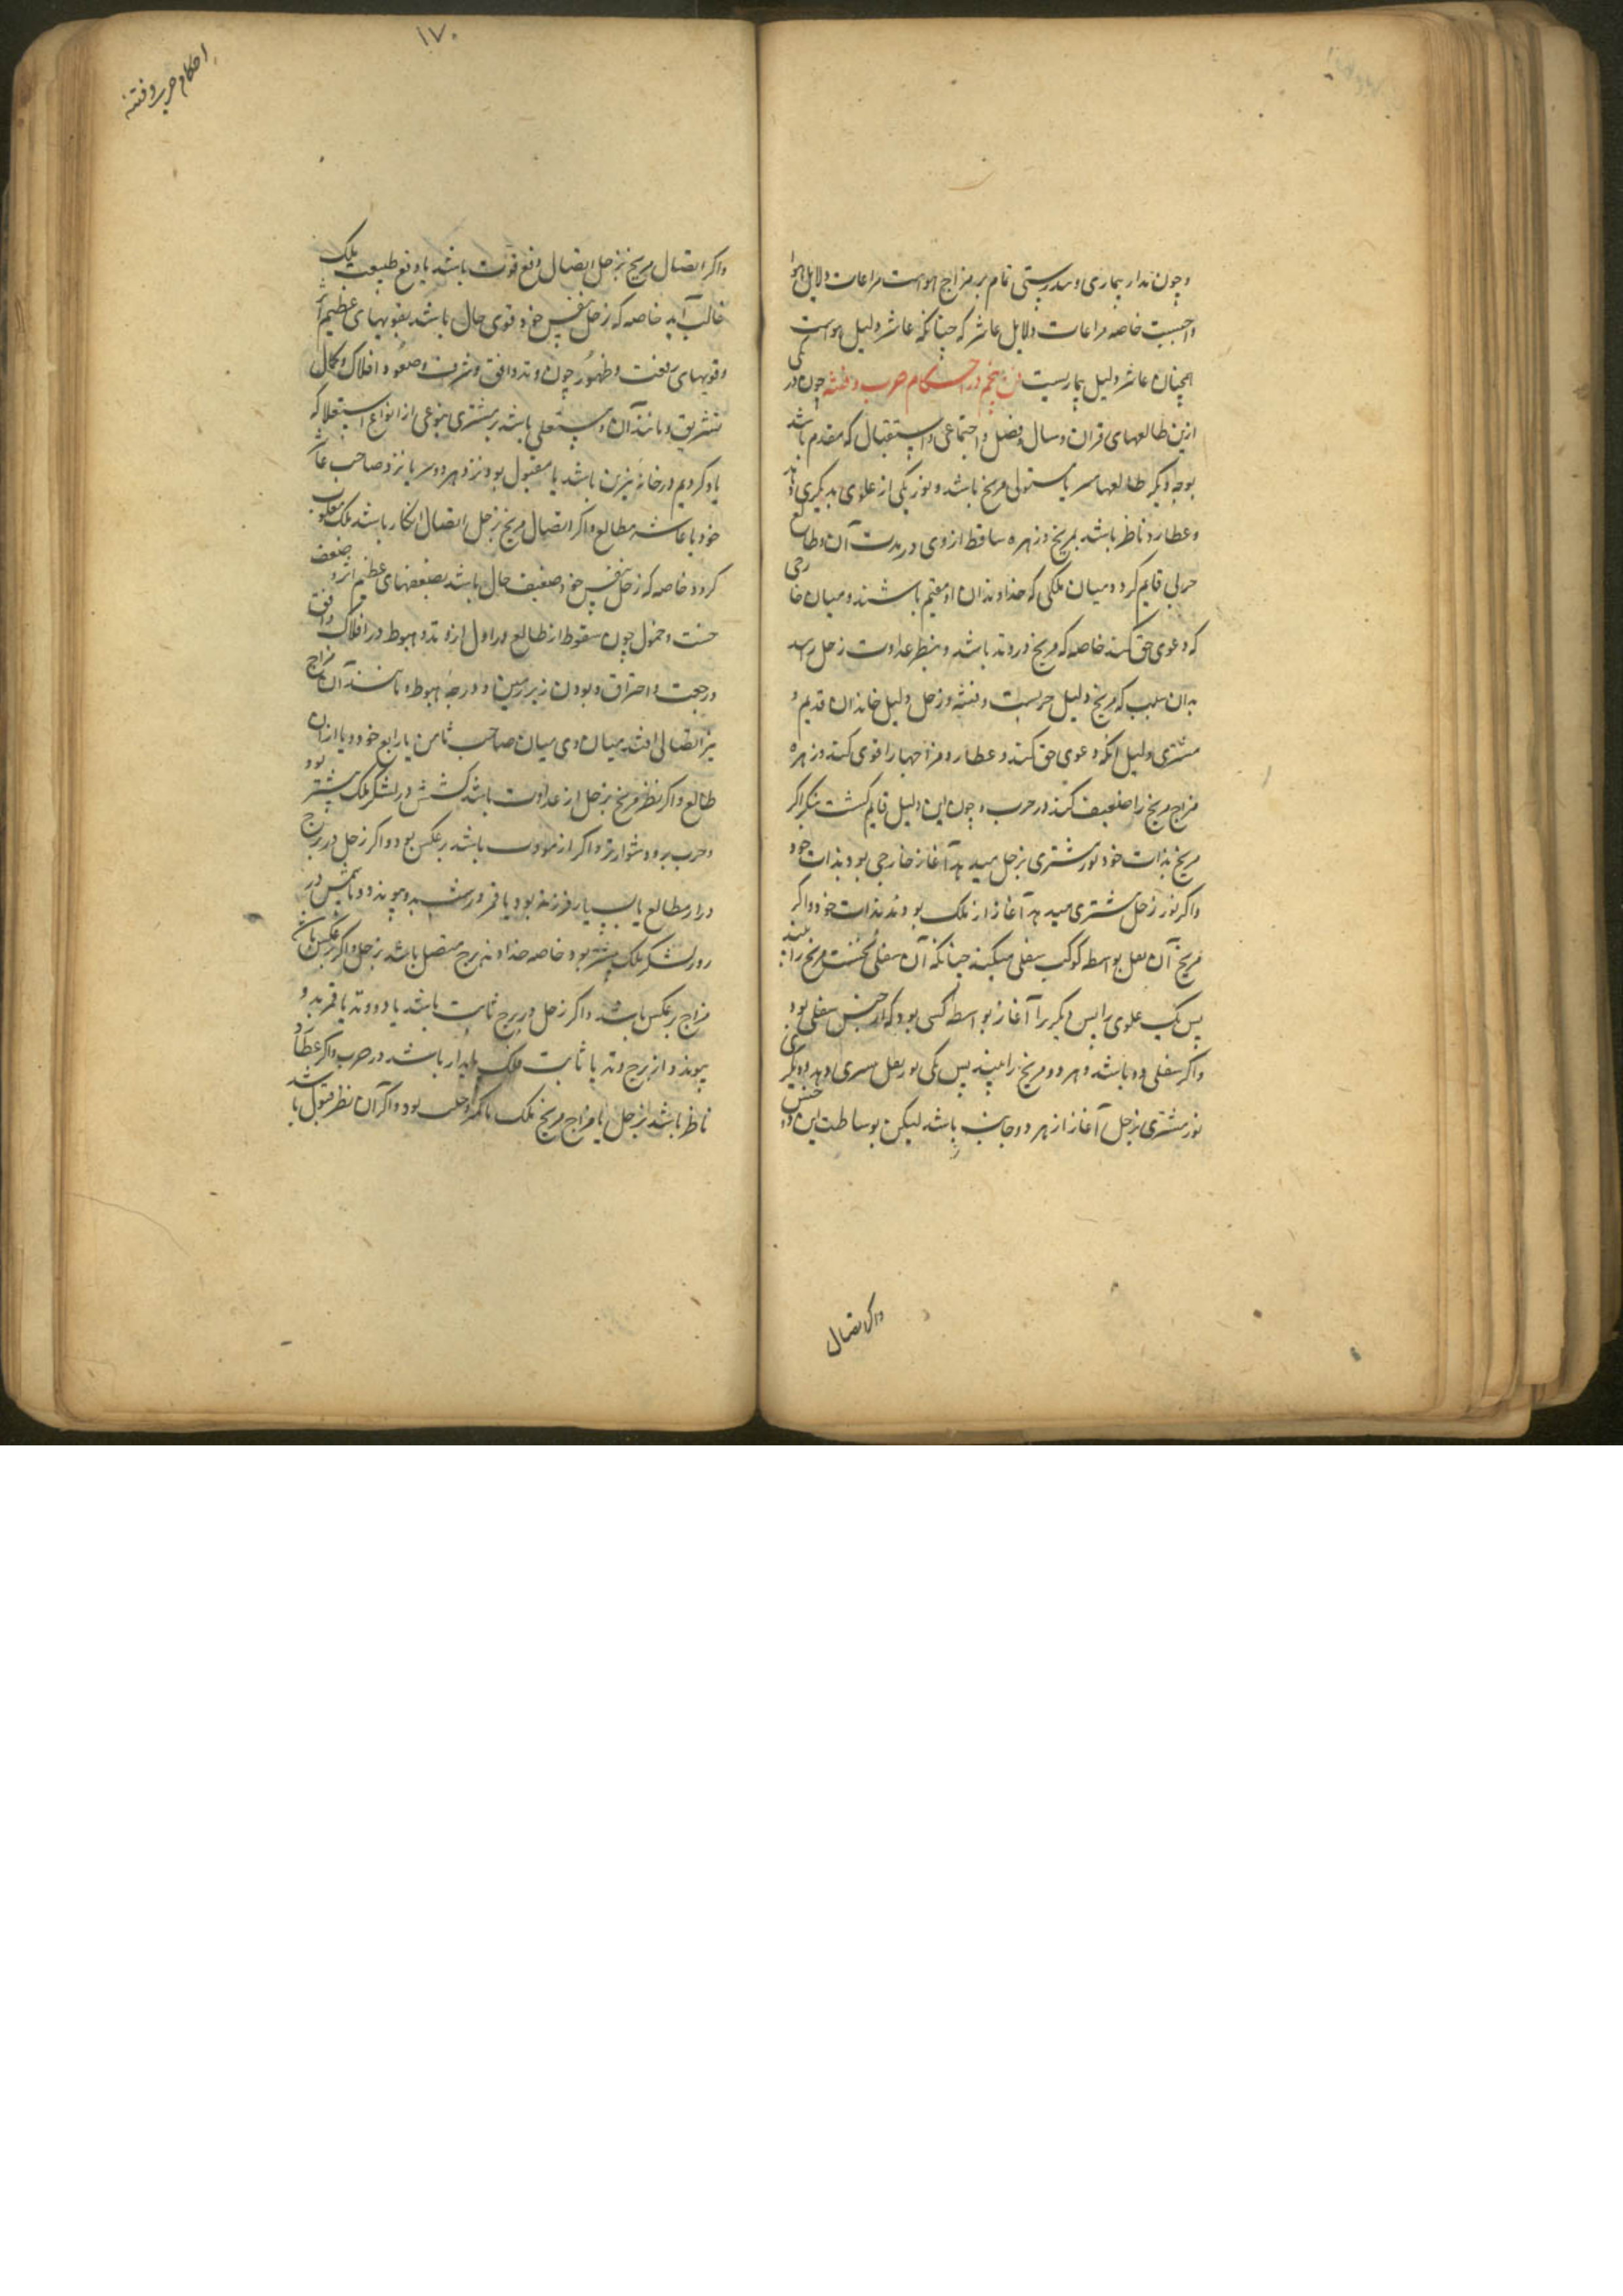 وچون مدار بیماری و تندرستی تمام بر مزاج هواست مراعات دلایل هوا
واجبست خاصه مراعات دلایل عاشر که چنانکه عاشر دلیل هواست
همچنان عاشر دلیل بیماریست فن پنجم در احکام حرب و فتنه چون در یکی
ازین طالعهای قران و سال و فصل و اجتماعی و استقبال که مقدم باشد
بوجه دیگر طالعها مریخ باشد و نور یکی از علوی بدیگری دهد
و عطارد ناظر باشد بمریخ و زهره ساقط از وی در مدت آن طالع
حربی قایم گردد میان ملکی که خداوندان او مقیم باشند و میان خارجی
که دعوی حق کند خاصه که مریخ در وتد باشد و بنظر عداوت زحل رسد
بدان سبب که مریخ دلیل حربست و فتنه و زحل دلیل خاندان قدیم و
مشتری دلیل آنکه دعوی حق کند و عطارد مزاجها را قوی کند و زهره
مزاج مریخ را ضعیف کند در حرب و چون این دلیل قایم گشت بنگر اگر
مریخ بذات خود نور مشتری بزحل میدهد آغاز خارجی بود بذات خود
واگر نور زحل بمشتری میدهد آغاز از ملک بود بذات خود واگر
مریخ آن نقل بواسطه کوکب سفلی میکند چنانکه آن سفلی نخست مریخ را بیند
پس یک علوی را پس دیگر را آغاز بواسطه کسی بود که از جنس سفلی بود
واگر سفلی دو باشد و هر دو مریخ را بینند پس یکی نور زحل بمشتری دهد و دیگری
نور مشتری بزحل آغاز از هر دو جانب باشد لیکن بوساطت این دو جنس
واگر اتصال
۱۷۰
احکام حرب و فتنه
واگر اتصال مریخ بزحل اتصال دفع قوت باشد یا دفع طبیعت ملک
غالب آید خاصه که زحل بنفس خود قوی حال باشد بقوتهای عظیم اثر
و قوتهای رفعت و ظهور چون وتد و افق و شرف و صعود افلاک و کمال
تشریق و مانند آن و مستعلی باشد بر مشتری بنوعی از انواع استعلا که
یاد کردیم در خانه نیرین باشد یا مقبول بود نزد هر دو یا نزد صاحب عاشر
خود یا عاشر طالع واگر اتصال مریخ بزحل اتصال انکار باشد ملک مغلوب
گردد خاصه که زحل بنفس خود ضعیف حال باشد بضعفهای عظیم اثر و ضعف
خست و خمول چون سقوط از طالع و زوال از وتد و هبوط در افلاک و افق
و رجعت و احتراق و بودن زیر زمین و درجه هبوط و مانند آن مزاج
نیز اتصالی افتد میان وی میان صاحب ثامن یا رابع خود و یا از آن
طالع واگر نظر مریخ بزحل از عداوت باشد کشش در لشکر ملک بیشتر بود
و حرب برو دشوارتر واگر از مودت باشد بر عکس بود واگر زحل در برج
دراز مطالع یا بسیار فرزند بود یا قمر و پیوندد و یا شمس در
روز لشکر ملک بیشتر بود خاصه خداوند برج متصل باشد بزحل واگر بر عکس باشد
مزاج بر عکس باشد واگر زحل در برج ثابت باشد یا در وتد یا قمر بدو
پیوندد از برج وتد یا ثابت ملک پایدار باشد در حرب واگر عطارد
ناظر باشد بزحل یا مزاج مریخ ملک با مکر و حیلت بود واگر آن نظر قبول باشد